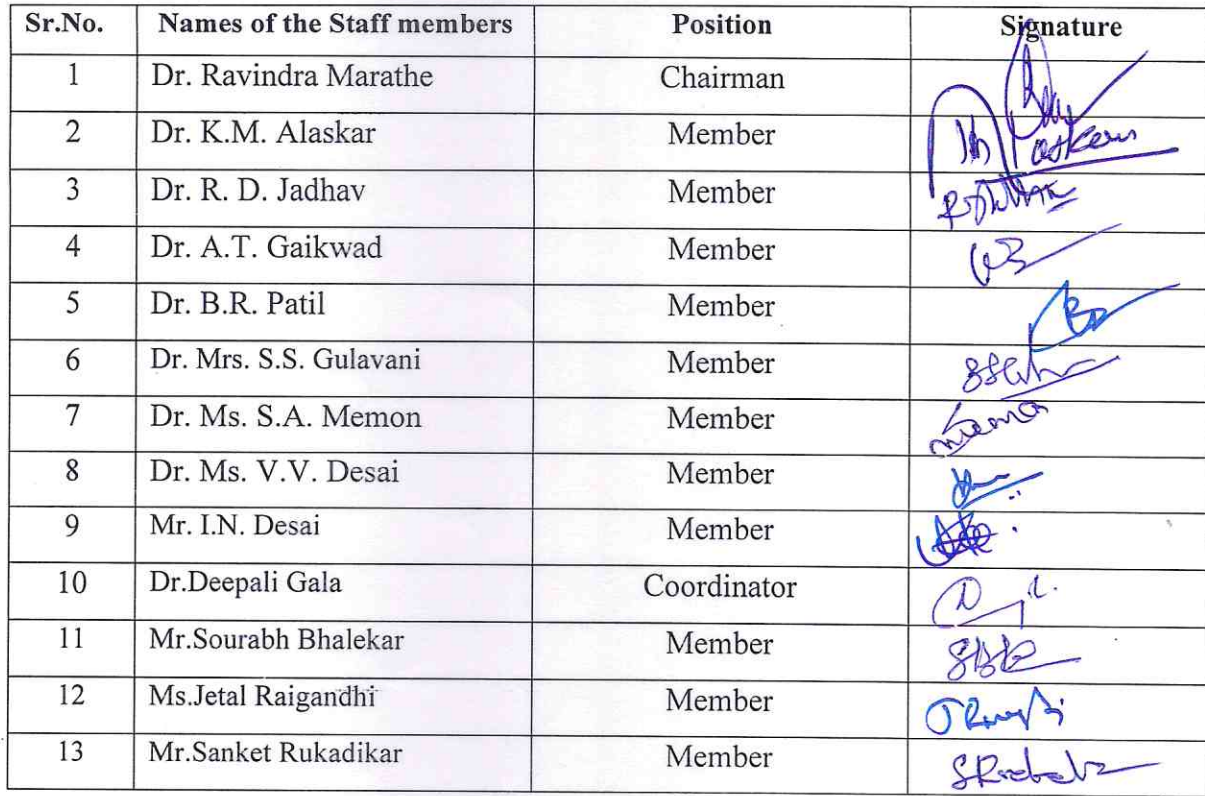 Sr.No. Names of the Staff members Position Signature
1 Dr. Ravindra Marathe Chairman
2 Dr. K.M. Alaskar Member
3 Dr. R. D. Jadhav Member
4 Dr. A.T. Gaikwad Member
5 Dr. B.R. Patil Member
6 Dr. Mrs. S.S. Gulavani Member
7 Dr. Ms. S.A. Memon Member
8 Dr. Ms. V.V. Desai Member
9 Mr. I.N. Desai Member
10 Dr.Deepali Gala Coordinator
11 Mr.Sourabh Bhalekar Member
12 Ms.Jetal Raigandhi Member
13 Mr.Sanket Rukadikar Member